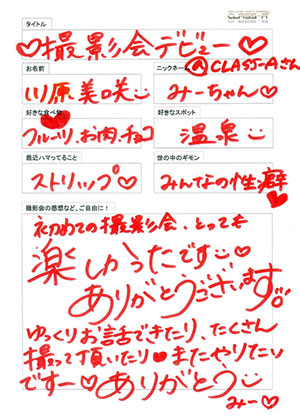 CLASS-A
タイトル
♡撮影会デビュー♡
@CLASS-Aさん
お名前
ニックネーム
川原美咲
みーちゃん♡
好きな食べ物
好きなスポット
フルーツ、お肉、チョコ
温泉
最近ハマってること
世の中のギモン
ストリップ♡
みんなの性癖
撮影会の感想など、ご自由に！
初めての撮影会、とっても
楽しゆったです
ありがとうございます。
ゆっくりお話できたり、たくさん
撮って頂いたり♥またやりたい
ですー♡ありがとう
みー♡